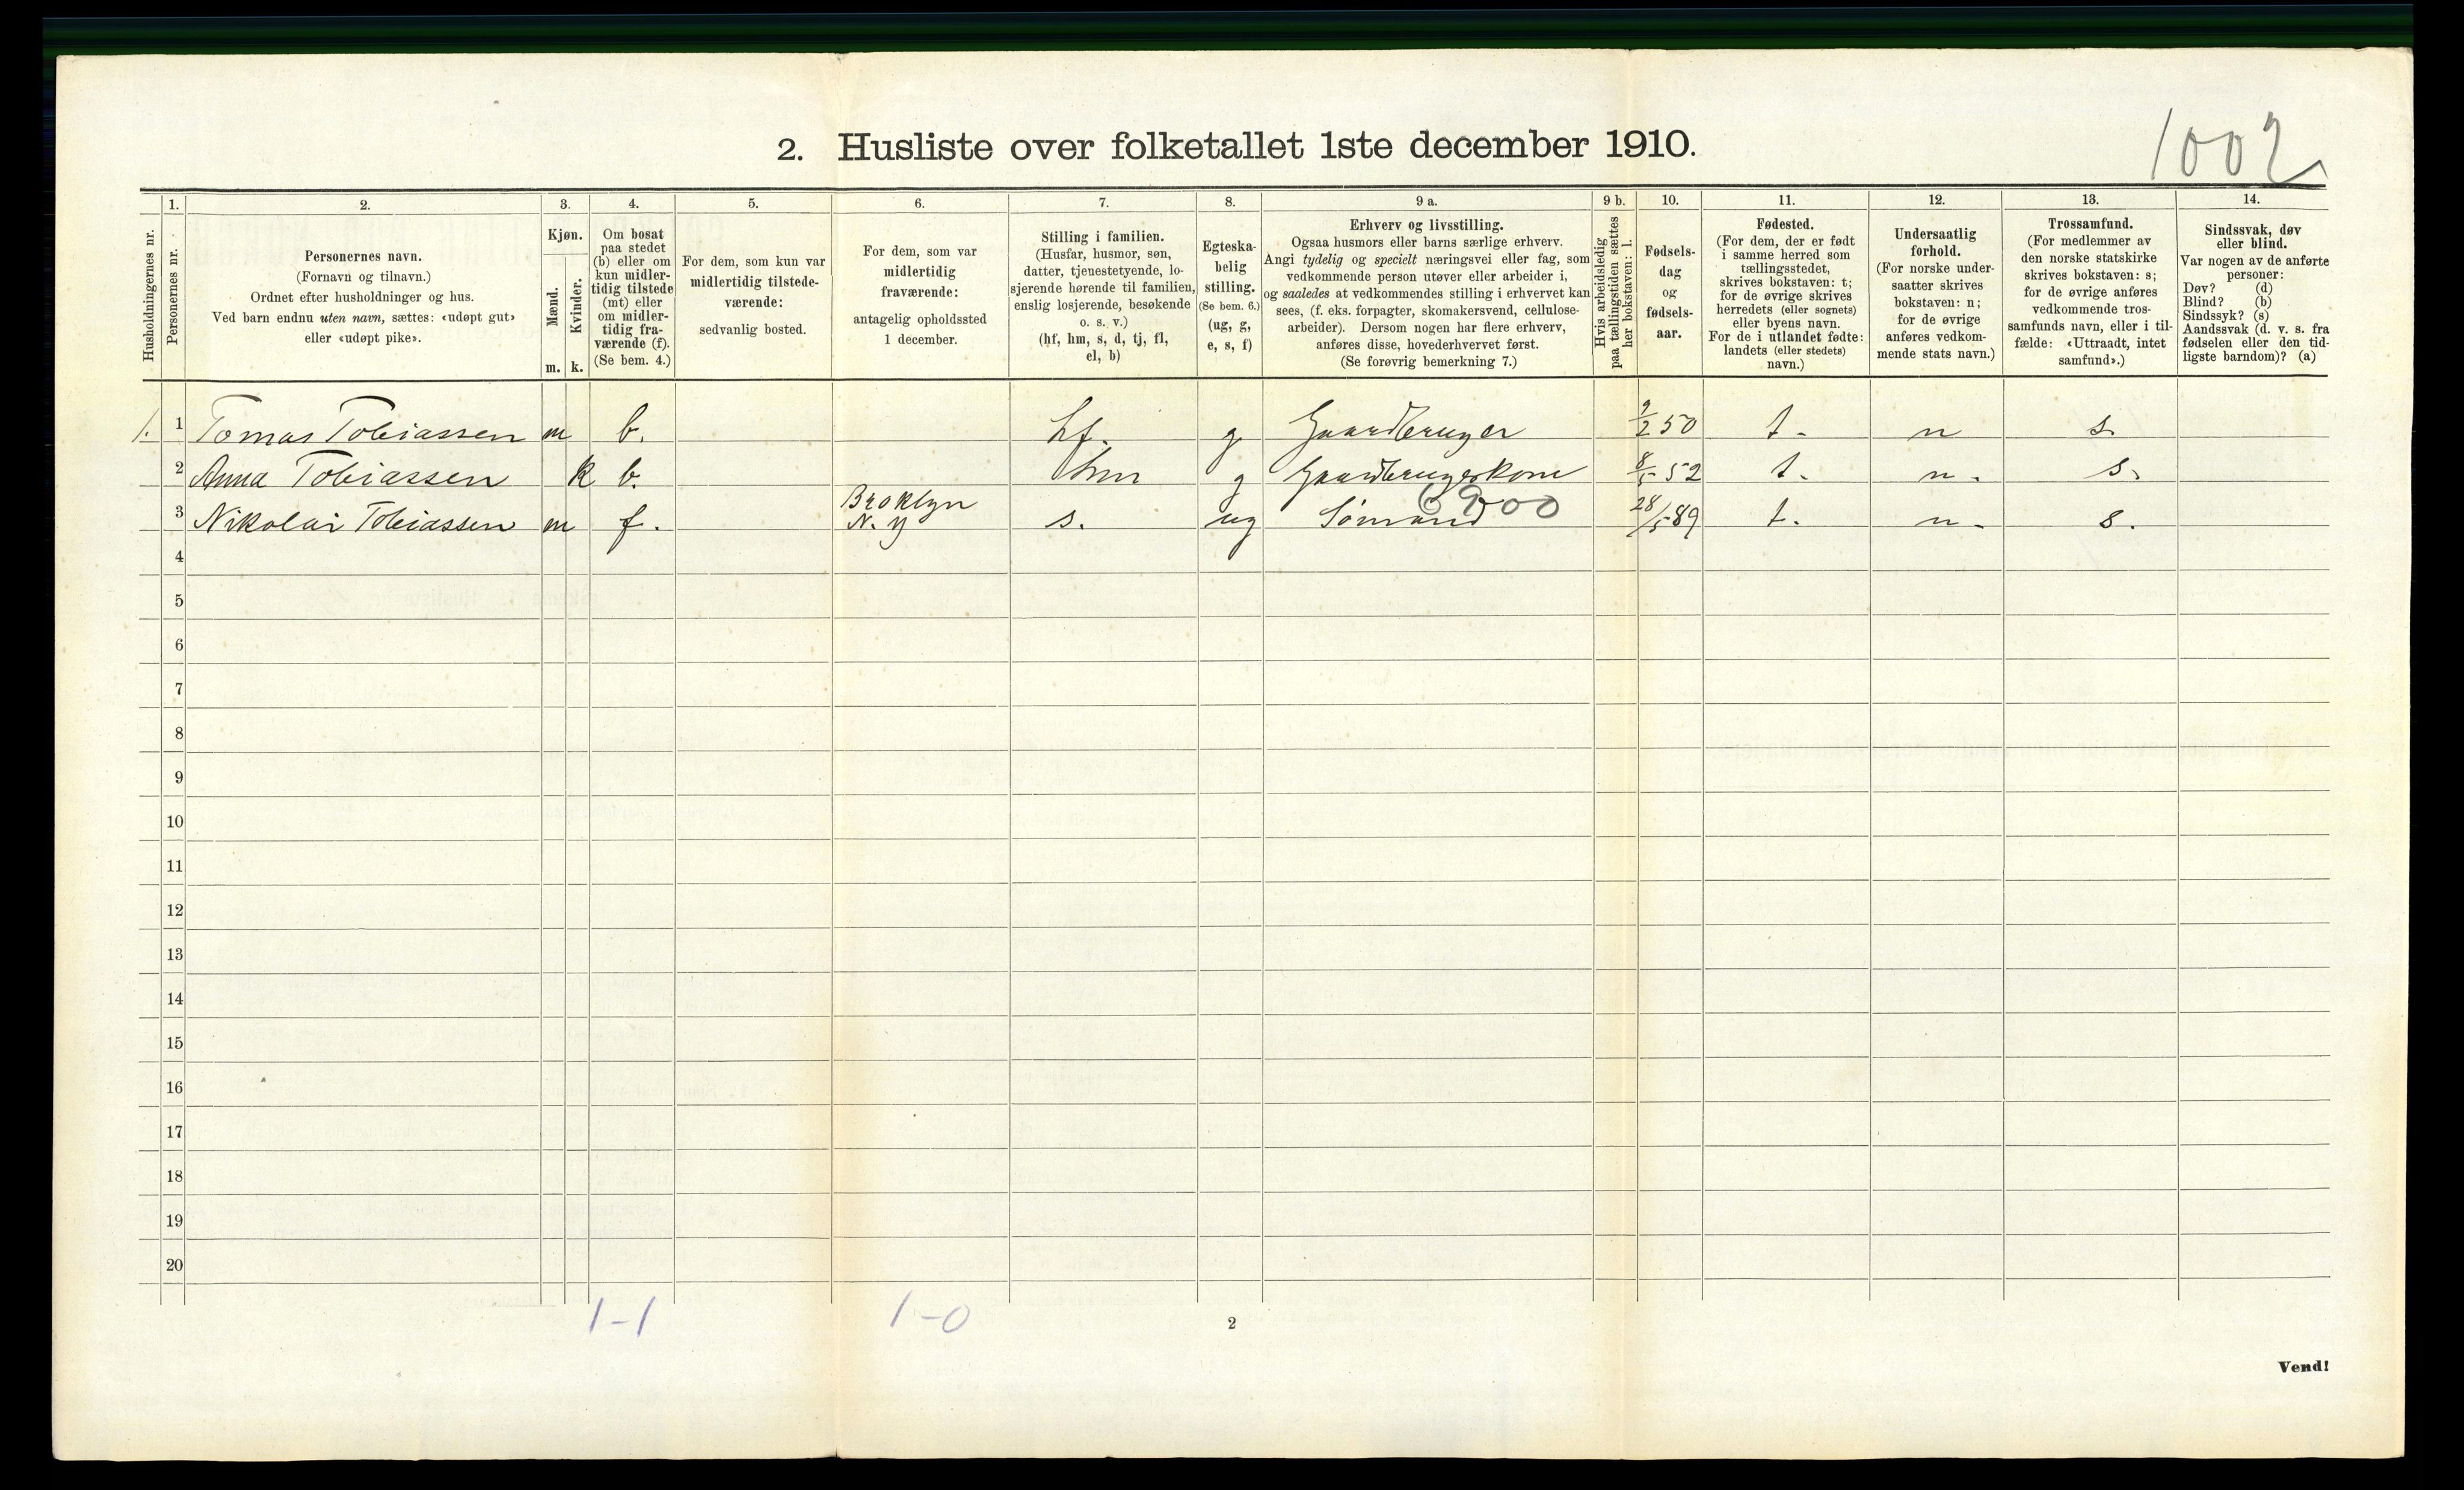 1002
2. Husliste over folketallet 1ste december 1910.
Husholdningernes nr.
1. Personernes nr.
2. Personernes navn.
(Fornavn og tilnavn.)
Ordnet efter husholdninger og hus.
Ved barn endnu uten navn, sættes: «udøpt gut»
eller «udøpt pike».
3. Kjøn.
Mænd. m.
Kvinder. k.
4. Om bosat
paa stedet
(b) eller om
kun midler-
tidig tilstede
(mt) eller
om midler-
tidig fra-
værende (f).
(Se bem. 4.)
5. For dem, som kun var
midlertidig tilstede-
værende:
sedvanlig bosted.
6. For dem, som var
midlertidig
fraværende:
antagelig opholdssted
1 december.
7. Stilling i familien.
(Husfar, husmor, søn,
datter, tjenestetyende, lo-
sjerende hørende til familien,
enslig losjerende, besøkende
o. s. v.)
(hf, hm, s, d, tj, fl,
el, b)
8. Egteska-
belig
stilling.
(Se bem. 6.)
(ug, g,
e, s, f)
9 a. Erhverv og livsstilling.
Ogsaa husmors eller barns særlige erhverv.
Angi tydelig og specielt næringsvei eller fag, som
vedkommende person utøver eller arbeider i,
og saaledes at vedkommendes stilling i erhvervet kan
sees, (f. eks. forpagter, skomakersvend, cellulose-
arbeider). Dersom nogen har flere erhverv,
anføres disse, hovederhvervet først.
(Se forøvrig bemerkning 7.)
9 b. Hvis arbeidsledig
paa tællingstiden sættes
her bokstaven: l.
10. Fødsels-
dag
og
fødsels-
aar.
11. Fødested.
(For dem, der er født
i samme herred som
tællingsstedet,
skrives bokstaven: t;
for de øvrige skrives
herredets (eller sognets)
eller byens navn.
For de i utlandet fødte:
landets (eller stedets)
navn.)
12. Undersaatlig
forhold.
(For norske under-
saatter skrives
bokstaven: n;
for de øvrige
anføres vedkom-
mende stats navn.)
13. Trossamfund.
(For medlemmer av
den norske statskirke
skrives bokstaven: s;
for de øvrige anføres
vedkommende tros-
samfunds navn, eller i til-
fælde: «Uttraadt, intet
samfund».)
14. Sindssvak, døv
eller blind.
Var nogen av de anførte
personer:
Døv? (d)
Blind? (b)
Sindssyk? (s)
Aandssvak (d. v. s. fra
fødselen eller den tid-
ligste barndom)? (a)
1. 1 Tomas Tobiassen m b. hf. g Gaardbruger 9/2 50 t. n s.
2 Anna Tobiassen k b. hm g Gaardbrugerkone 8/5 52 t. n. s.
3 Nikolai Tobiassen m f. Broklyn N. Y s. ug Sømand 6900 28/5 89 t. n. s.
4
5
6
7
8
9
10
11
12
13
14
15
16
17
18
19
20
1-1 1-0
2
Vend!